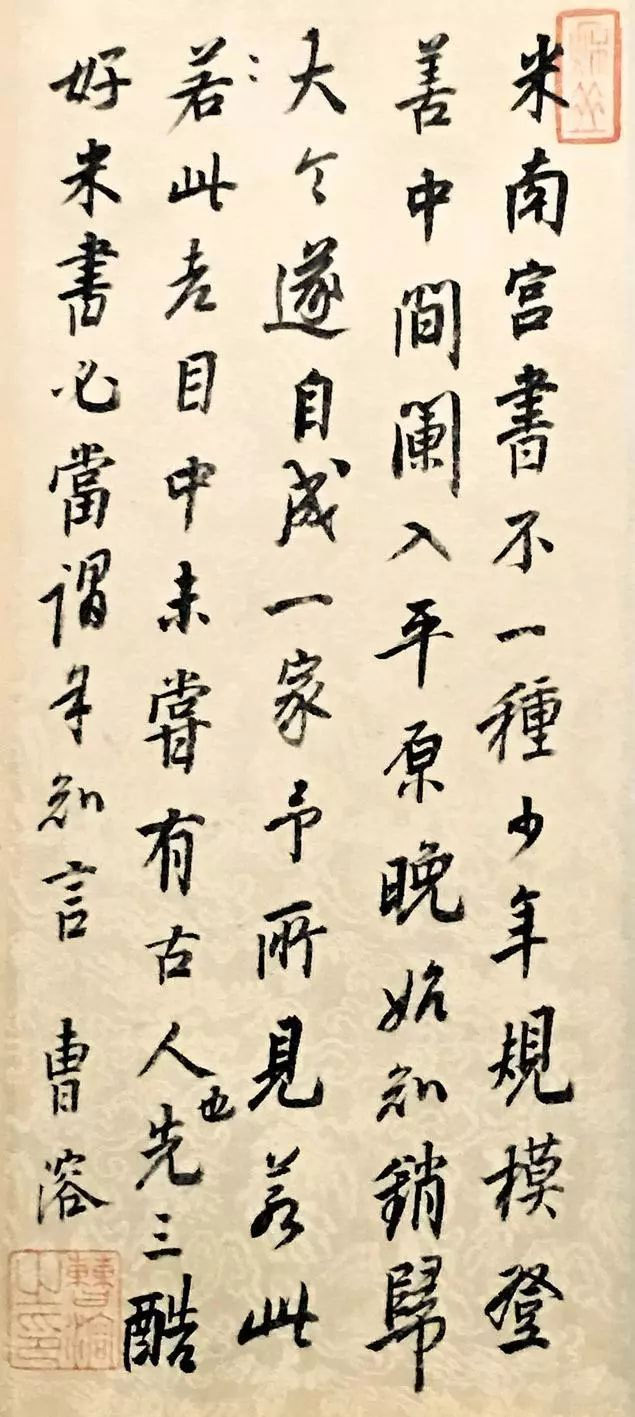 米南宫書不一種少年規模登
善中間闌入平原晚始知銷歸
大令遂自成一家予所見若此
若此老目中未嘗有古人也先三酷
好米書必當謂知言 曹溶
曹溶之印